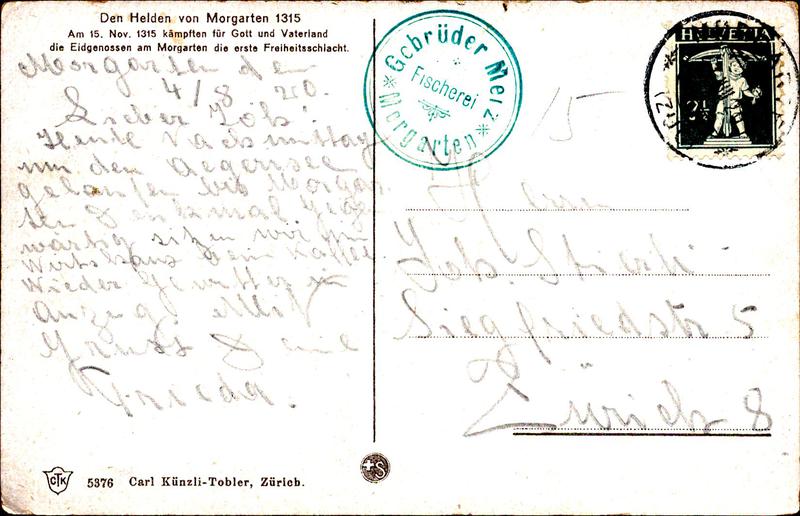 Den Helden von Morgarten 1315
Am 15. Nov. 1315 kämpften für Gott und Vaterland
die Eidgenossen am Morgarten die erste Freiheitsschlacht.
Morgarten den
4/8 20.
Lieber Job!
Heute Nachmittag
um den Aegerisee
gelaufen bis Morgar
ten Denkmal Geg
wärtig sitzen wir im
Wirtshaus beim Kaffee
Wieder Gewitter in
Anzug Mit
Gruss Deine
Frieda.
Gebrüder Merz
Fischerei
Morgarten
HELVETIA
2½
15
Herrn
Job. Stierli
Siegfriedstr 5
Zürich 8
CTK 5376 Carl Künzli-Tobler, Zürich.
+S